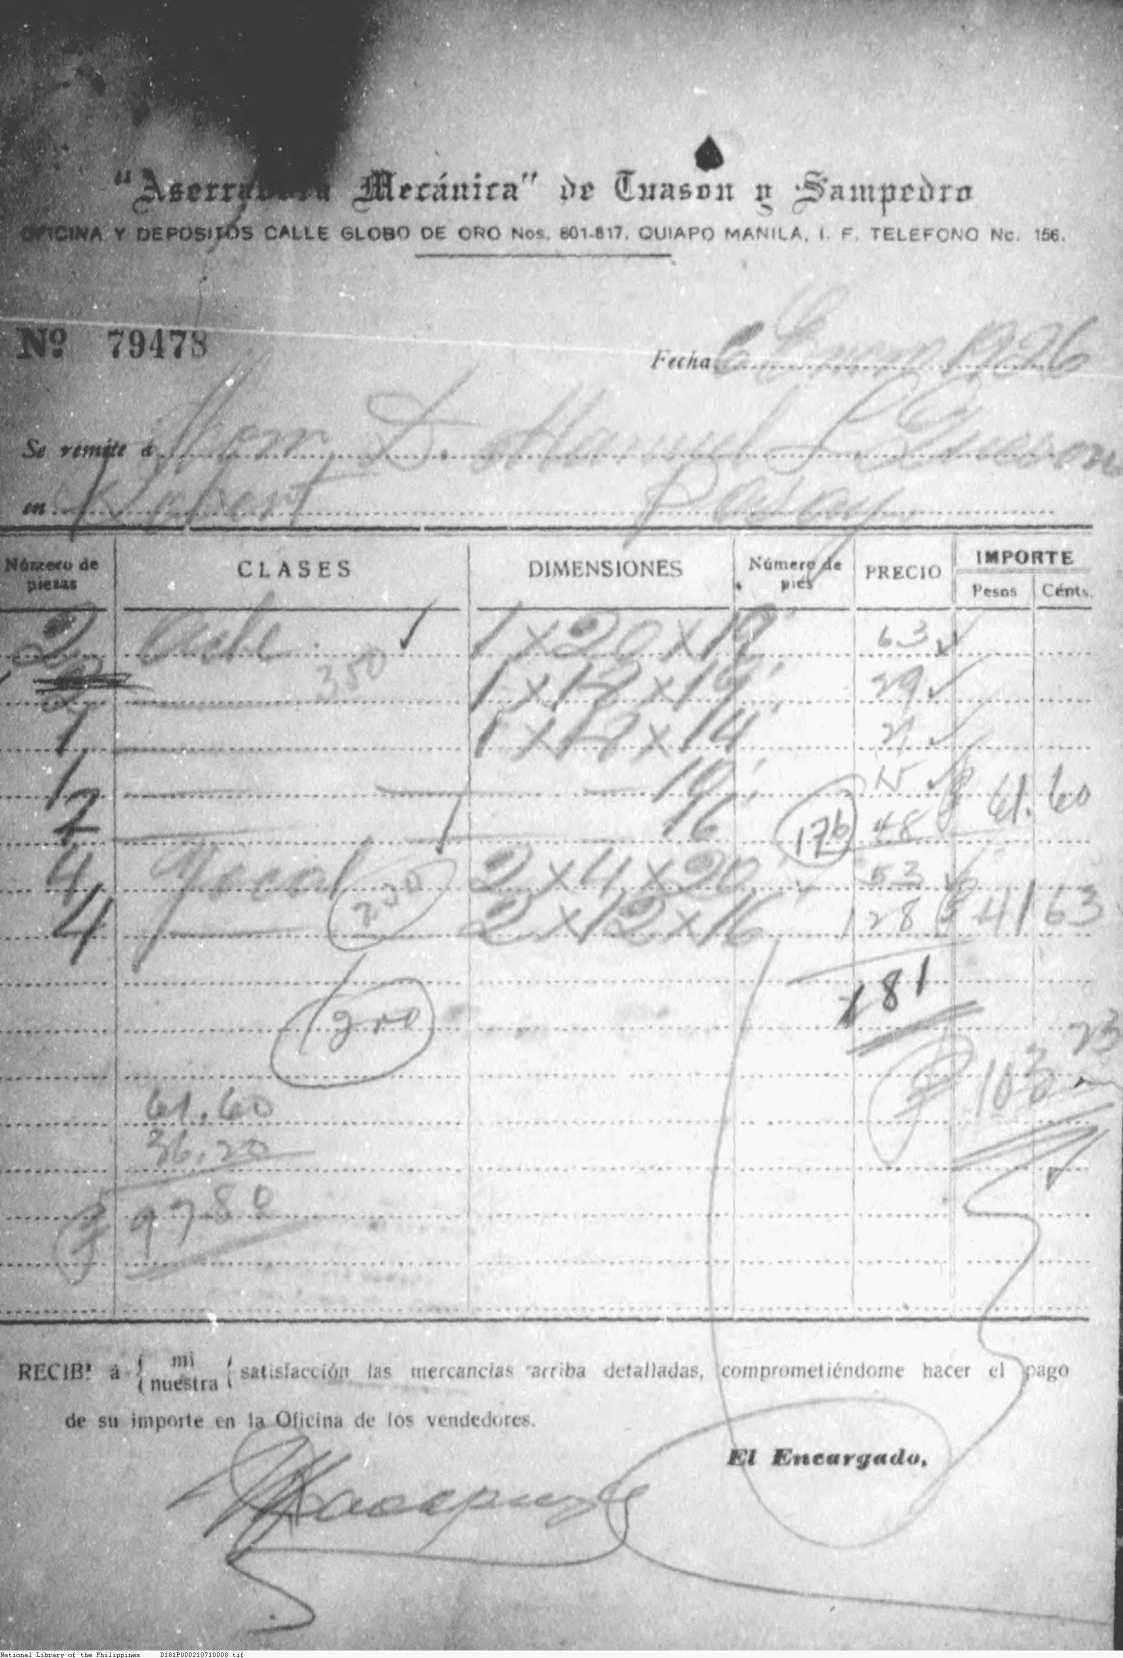 "Aserradora Mecánica" de Tuason y Sampedro
OFICINA Y DEPOSITOS CALLE GLOBO DE ORO Nos. 801-817, QUIAPO MANILA, I. F. TELEFONO No. 156.
Nº 79478
Fecha 6 Enero 1926
Se remite á Hon. D. Manuel L Quezon
en Pasay
Número de piezas CLASES DIMENSIONES Número de piés PRECIO IMPORTE
Pesos Cénts.
2 1 x 20 x 19' 63
350 1 x 12 x 19' 29
1 1 x 12 x 14'
1
2 16' 176 48 61.60
4 2 x 4 x 20' 53
4 2 x 12 x 16' 128 41 63
181
200
₱ 103 23
61.60
36.20
₱ 97.80
RECIBÍ á { mi nuestra { satisfacción las mercancias arriba detalladas, comprometiéndome hacer el pago
de su importe en la Oficina de los vendedores.
El Encargado,
National Library of the Philippines D181P000210710008.tif